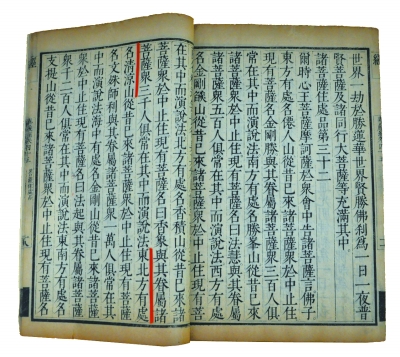 世界一劫於勝蓮華世界賢勝佛剎為一日一夜普
賢菩薩及諸同行大菩薩等充滿其中
諸菩薩住處品第三十二
爾時心王菩薩摩訶薩於眾會中告諸菩薩言佛子
東方有處名僊人山從昔已來諸菩薩眾於中止住
現有菩薩名金剛勝與其眷屬諸菩薩眾三百人俱
常在其中而演說法南方有處名勝峯山從昔已來
諸菩薩眾於中止住現有菩薩名曰法慧與其眷屬
諸菩薩眾五百人俱常在其中而演說法西方有處
名金剛燄山從昔已來諸菩薩眾於中止住現有菩
在其中而演說法北方有處名香積山從昔已來諸
菩薩眾於中止住現有菩薩名曰香象與其眷屬諸
菩薩眾三千人俱常在其中而演說法東北方有處
名清涼山從昔已來諸菩薩眾於中止住現有菩薩
名文殊師利與其眷屬諸菩薩眾一萬人俱常在其
中而演說法海中有處名金剛山從昔已來諸菩薩
眾於中止住現有菩薩名曰法起與其眷屬諸菩薩
眾千二百人俱常在其中而演說法東南方有處名
支提山從昔已來諸菩薩眾於中止住現有菩薩名